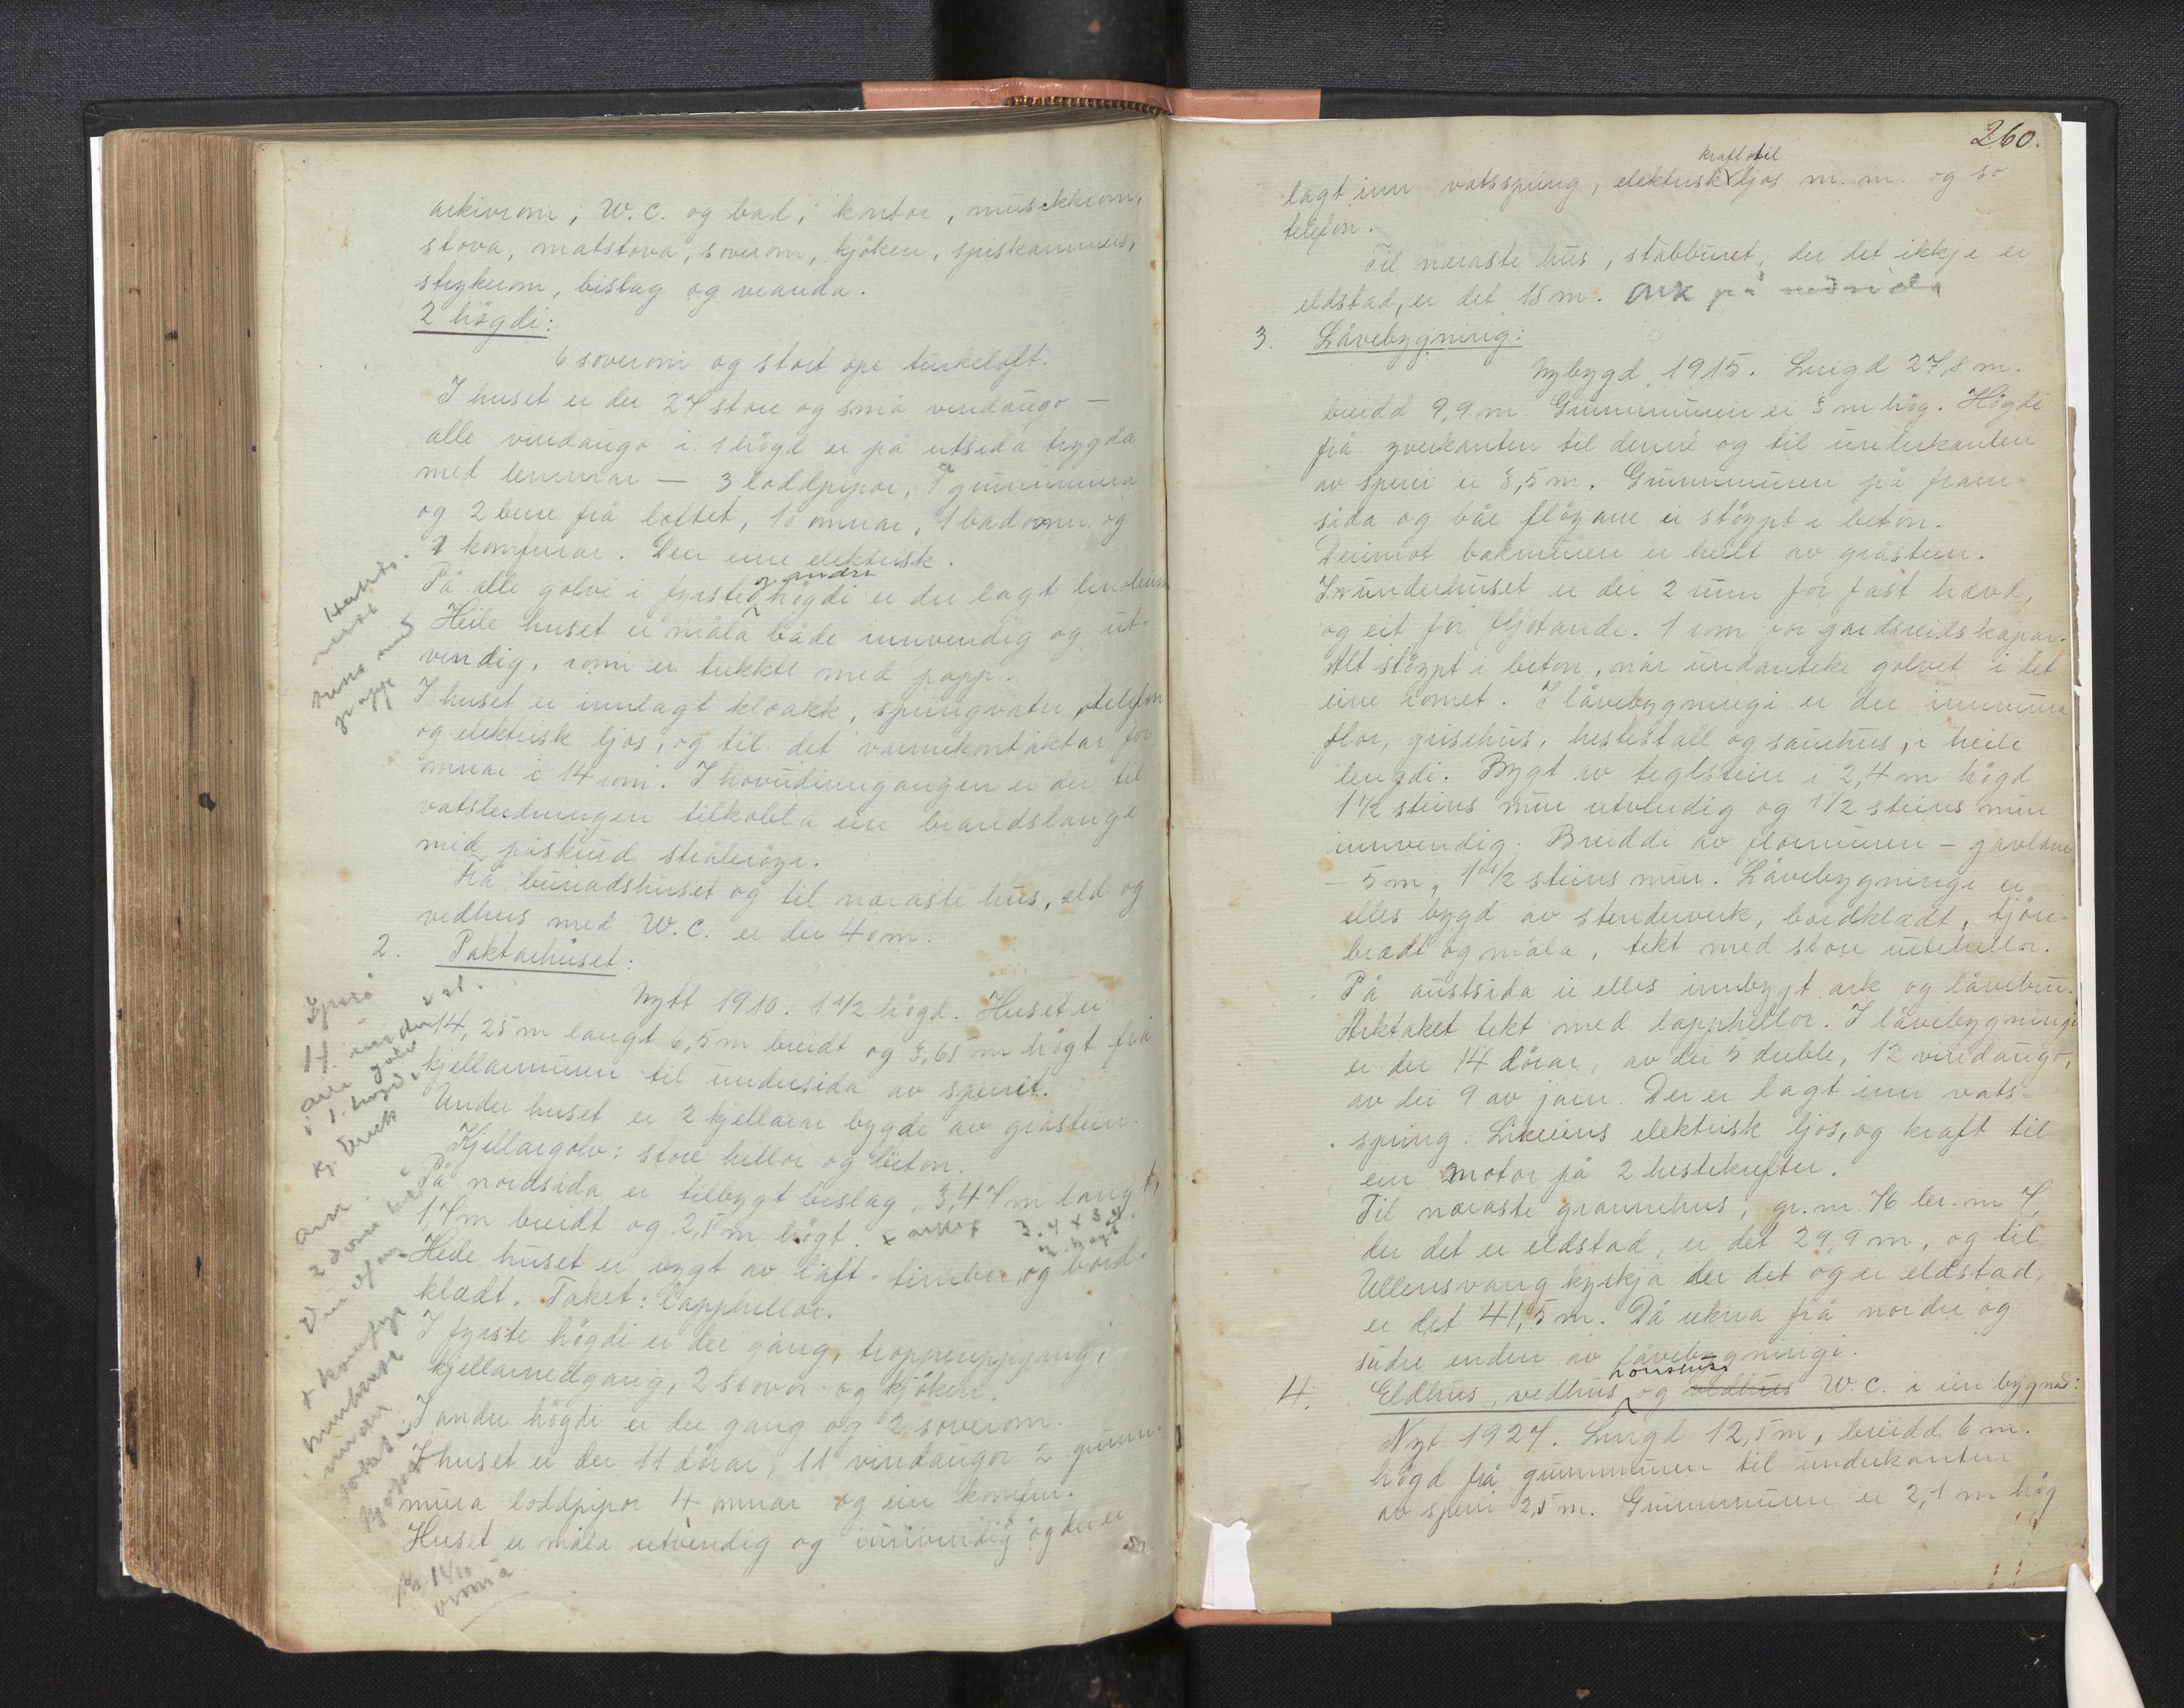 arkivrom, W.C. og bad, kontor, musikkrom,
stova, matstova, soverom, kjöken, spiskammers,
strykerom, bislag og veranda.
2 högdi:
6 soverom og stort ope turkeloft.
I huset er der 27 store og små vindaugo —
alle vindaugo i 1 högd er på utsida trygda
med lemmar — 3 loddpipor, 1 grunnmura
og 2 bere frå loftet, 10 omnar, 1 badomn og
2 komfurar. Den eine elektrisk.
På alle golvi i fyrste og andre högdi er der lagt linoleum
Heile huset er måla både innvendig og ut-
vendig, romi er trekkte med papp.
I huset er innlagt kloakk, springvatn, telefon
og elektrisk ljos, og til det varmekontaktar for
omnar i 14 rom. I hovudinngangen er der til
vatsledningen tilkobla ein brandslange
med påskrud strålerøyr.
Frå bunadshuset og til naraste hus, eld og
vedhus med W.C. er der 40 m.
2. Paktarhuset:
Nytt 1910. 1 1/2 högd. Huset er
14,25 m langt 6,5 m breidt og 3,65 m högt frå
kjellarmuren til undersida av sperrit.
Under huset er 2 kjellarar bygde av gråstein.
Kjellargolv: store hellor og beton.
På nordsida er tilbygt bislag, 3,47 m langt,
1,7 m breidt og 2,5 m högt. + arker 3.4 x 3.4
Heile huset er bygt av laft-timber, og bord-
klædt. Taket: Lapphellor.
I fyrste högdi er der gang, trappeuppgang,
kjellarnedgang, 2 stovor og kjöken.
I andre högdi er der gang og 2 soverom.
I huset er der 11 dörar, 11 vindaugor 2 grunn-
mura loddpipor 4 omnar og ein komfur.
Huset er måla utvendig og innvendig og der er
260.
lagt inn vatsspring, elektrisk kraft til ljos m. m. og so
telefon.
Til naraste hus, stabburet, der det ikkje er
eldstad, er det 18 m. Ark på nedsida
3. Låvebygning:
Nybygd 1915. Lengd 27,8 m.
breidd 9,9 m. Grunnmuren er 3 m hög. Högdi
frå yverkanten til denne og til underkanten
av sperri er 3,5 m. Grunnmuren på fram-
sida og båe flöyane er stöypt i beton.
Derimot bakmuren er heilt av gråstein.
I underhuset er der 2 rum for fast hævd,
og eit for fljotande. 1 rom for gardsreidskapar.
Alt stöypt i beton, når undanteke golvet i det
eine romet. I låvebygningi er der innmura
flor, grisehus, hestestall og sauehus, i heile
lengdi. Bygt av teglstein i 2,4 m högd
1 1/2 steins mur utvendig og 1/2 steins mur
innvendig. Breiddi av flormuren — gavlane
— 5 m, 1 1/2 steins mur. Låvebygningi er
elles bygd av stenderverk, bordklædt, tjöre-
brædt og måla, tekt med store
På austsida er elles innbygt ark og låvebru.
Arktaket tekt med lapphellor. I låvebygningi
er der 14 dörar, av dei 5 duble, 12 vindaugo,
av dei 9 av jarn. Der er lagt inn vats-
spring. Likeeins elektrisk ljos, og kraft til
ein motor på 2 hestekrefter.
Til naraste grannehus, gr. nr. 76 br. nr 7,
der det er eldstad, er det 29,9 m, og til
Ullensvang kyrkja der det og er eldstad,
er det 41,5 m. Då rekna frå nordre og
södre enden av låvebygningi.
4. Eldhus, vedhus, hönsehus og vedhus W.C. i ein bygnad:
Nyt 1927. Lengd 12,5 m, breidd 6 m.
högd frå grunnmuren til underkanten
av sperri 2,5 m. Grunnmuren er 2,1 m hög